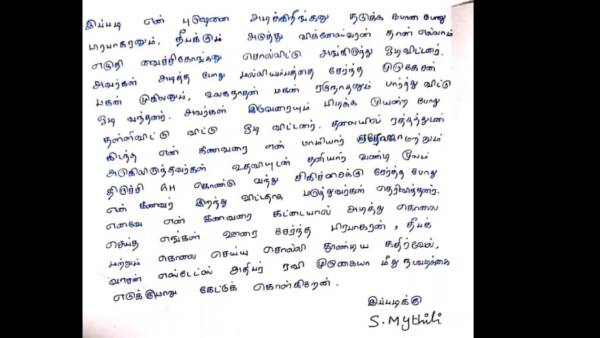 இப்படி என் புருஷனை அடிக்கிறீங்கனு தடுக்க போன போது
பிரபாகரனும், தீபக்கும் அடுத்து விக்னேஸ்வரன் தான் எல்லாம்
எழுதி வைச்சிகோங்கனு சொல்லிட்டு அங்கிருந்து ஓடிவிட்டனர்.
அவர்கள் அடித்த போது மல்லியம்பத்தை சேர்ந்த முருகேசன்
மகன் முகிலனும், உலகநாதன் மகன் ரகுநாதனும் பார்த்து விட்டு
ஓடி வந்தனர். அவர்கள் இருவரையும் பிடிக்க முயன்ற போது
தள்ளிவிட்டு விட்டு ஓடி விட்டனர். தலையில் ரத்தத்துடன்
கிடந்த என் கணவரை என் மாமியார் மற்றும்
அருகிலிருந்தவர்கள் உதவியுடன் தனியார் வண்டி மூலம்
திருச்சி GH கொண்டு வந்து சிகிச்சைக்கு சேர்த்த போது
என் கணவர் இறந்து விட்டதாக மருத்துவர்கள் தெரிவித்தனர்.
எனவே என் கணவரை கட்டையால் அடித்து கொலை
செய்த எங்கள் ஊரை சேர்ந்த பிரபாகரன், தீபக்
மற்றும் கொலை செய்ய சொல்லி தூண்டிய கதிர்வேல்,
வாசன் எஸ்டேட்ஸ் அதிபர் ரவி முருகையா மீது நடவடிக்கை
எடுக்குமாறு கேட்டுக் கொள்கிறேன்.
இப்படிக்கு
S. Mythili